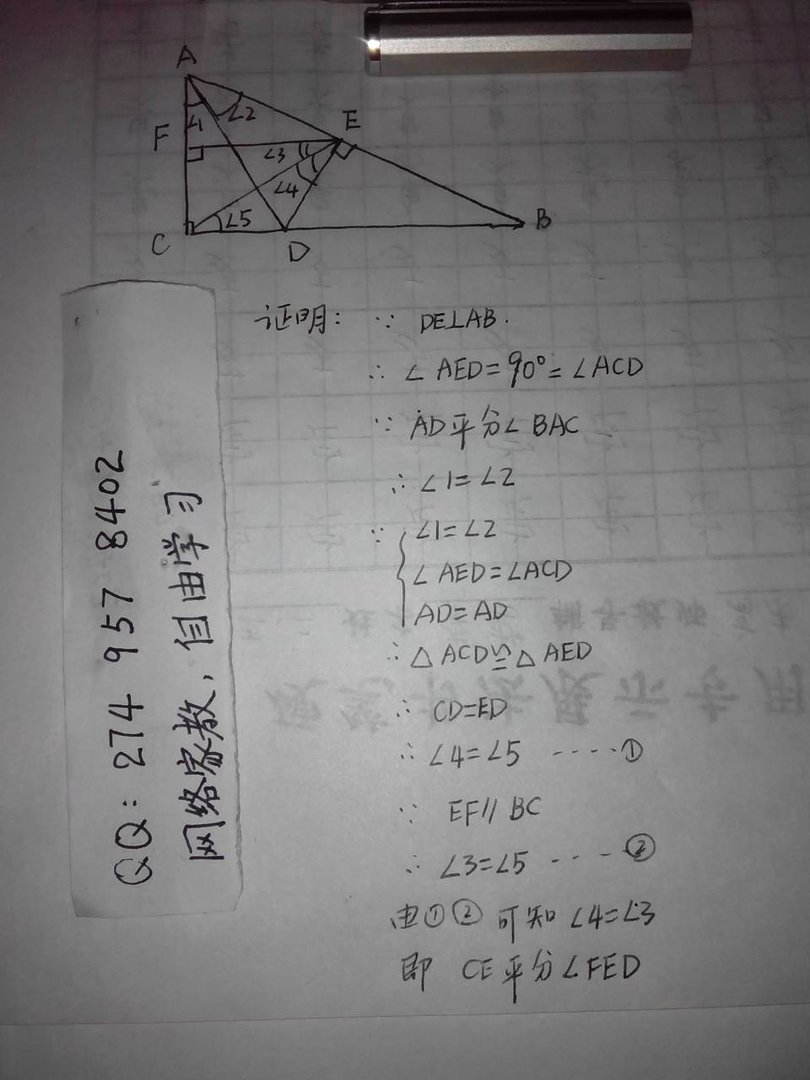 A
∠1
∠2
F
E
∠3
∠4
∠5
C
D
B
证明: ∵ DE⊥AB.
∴ ∠AED=90°=∠ACD
∵ AD平分∠BAC
∴ ∠1=∠2
∵ ∠1=∠2
∠AED=∠ACD
AD=AD
∴ △ACD≌△AED
∴ CD=ED
∴ ∠4=∠5 ----- ①
∵ EF∥BC
∴ ∠3=∠5 ---- ②
由①② 可知 ∠4=∠3
即 CE平分∠FED
QQ: 274 957 8402
网络家教, 自由学习